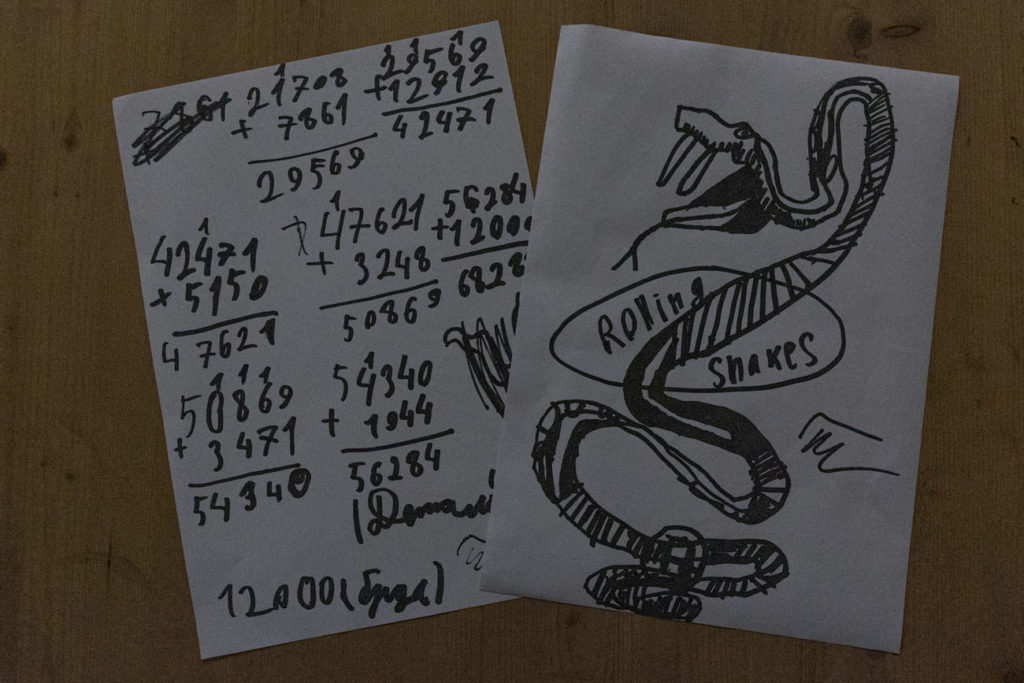 21708
+ 7861
29569
29569
+12912
42471
42471
+ 5150
47621
47621
+ 3248
50869
56284
+1200
6828
50869
+ 3471
54340
54340
+ 1944
56284
12000(
ROlling
snakes